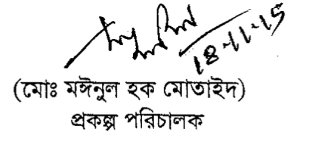 18-11-15
(মোঃ মঈনুল হক মোতাইদ)
প্রকল্প পরিচালক